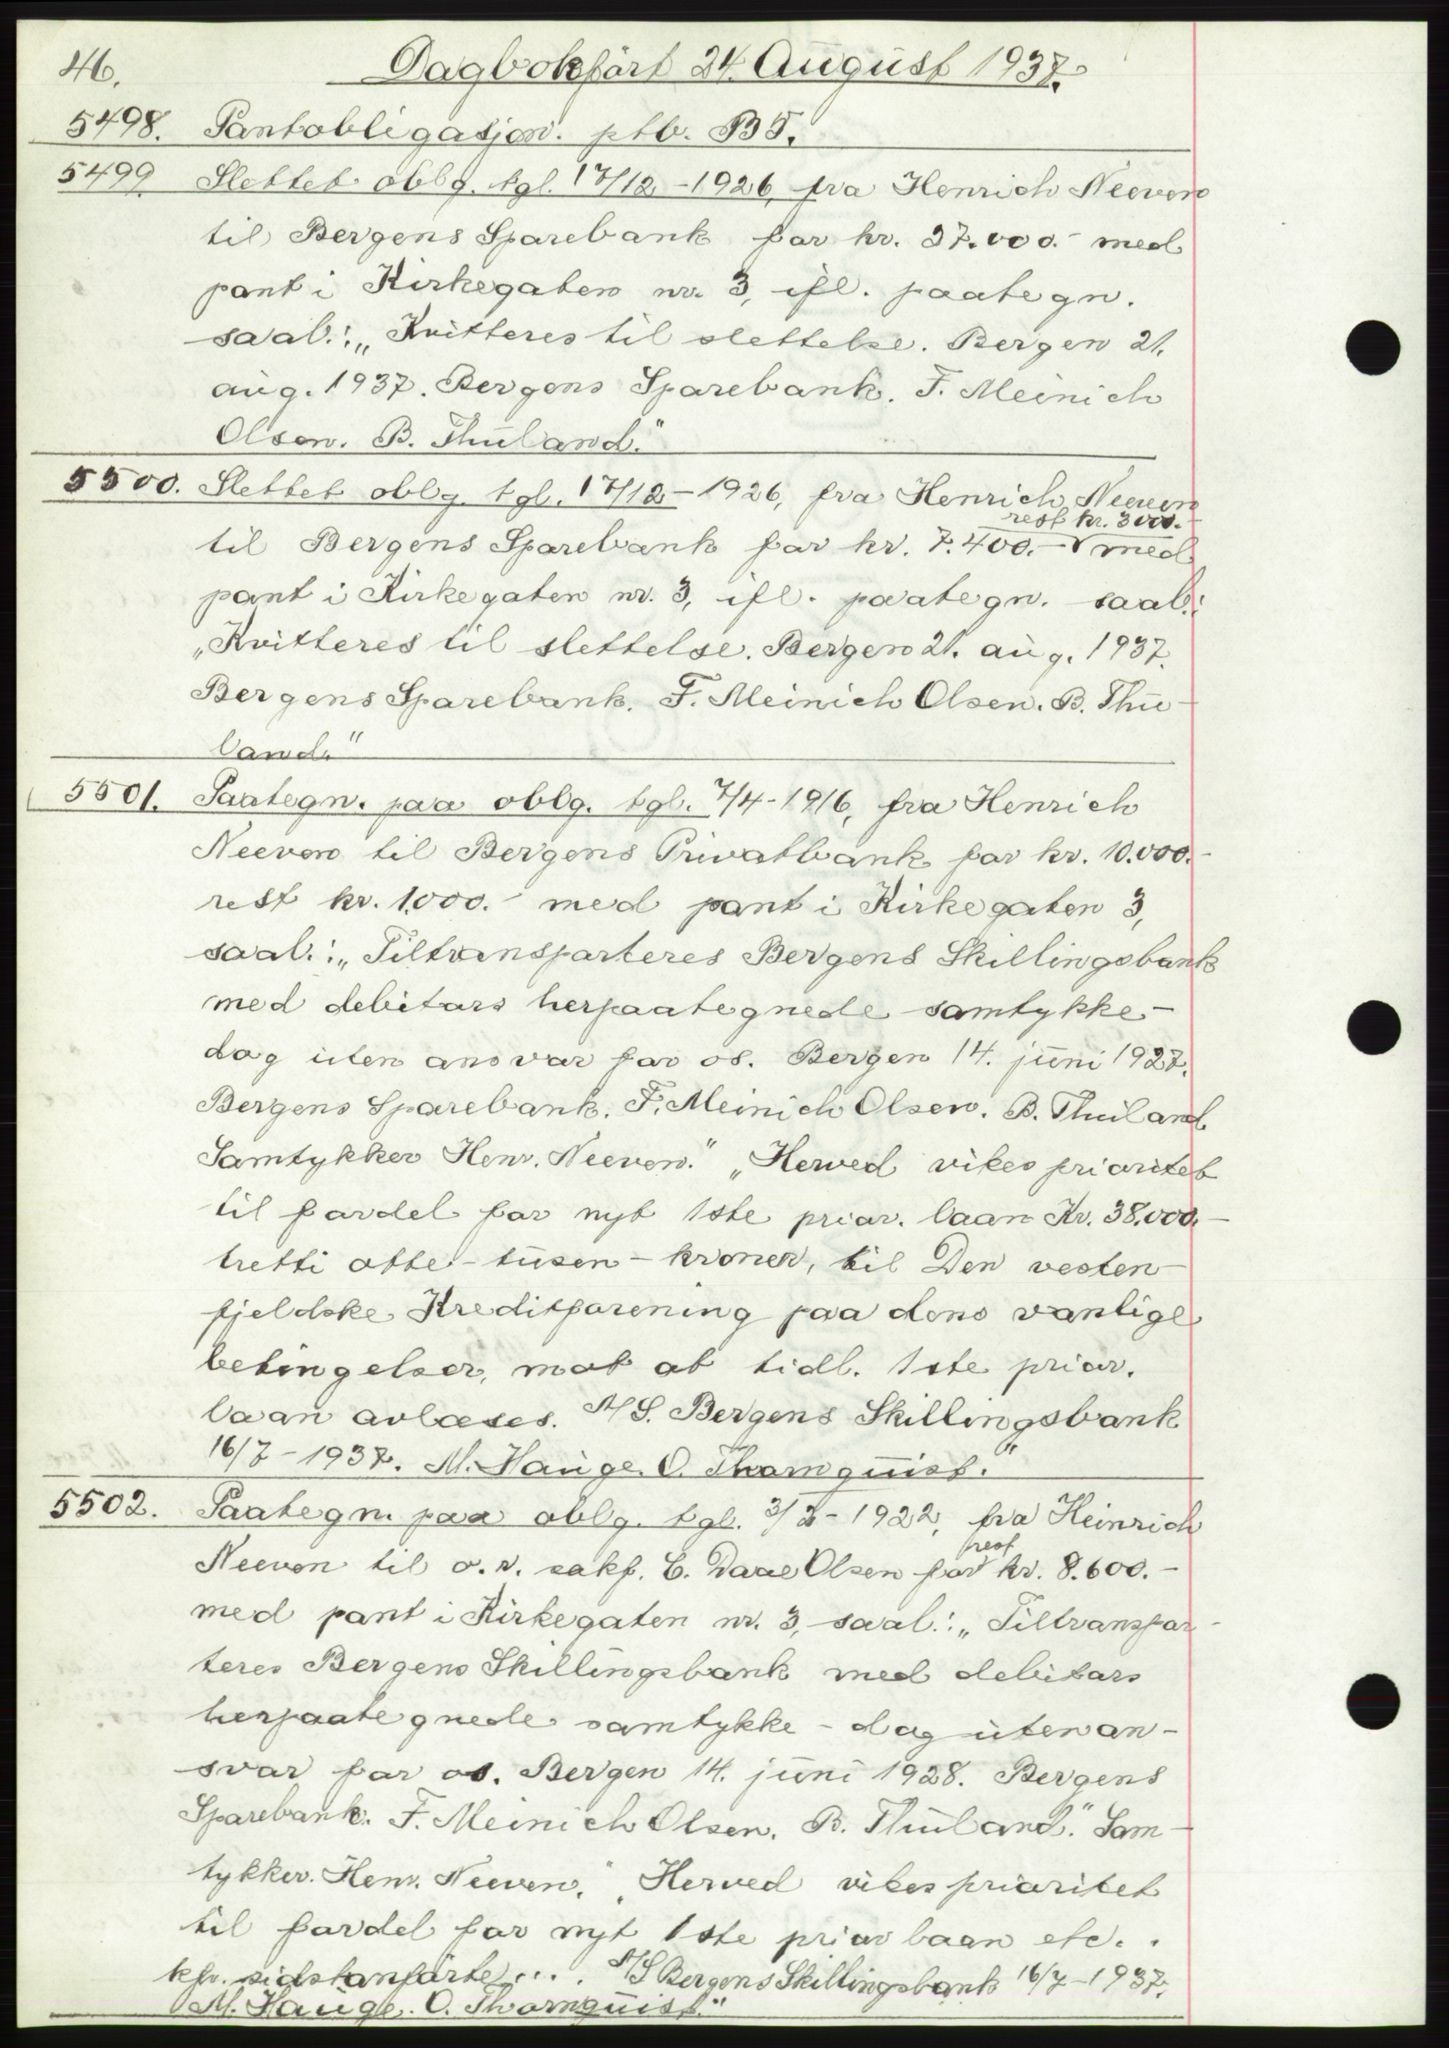 46.
Dagbokført 24. August 1937.
5498. Pantobligasjon. ptb. B5.
5499. Slettet oblg. tgl. 17/12-1926, fra Henrich Neeven
til Bergens Sparebank for kr. 37.000.- med
pant i Kirkegaten nr. 3, ifl. paategn.
saal.: „Kvitteres til slettelse. Bergen 21.
aug. 1937. Bergens Sparebank. F. Meinich
Olsen. B. Thuland."
5500. Slettet oblg. tgl. 17/12-1926, fra Henrich Neeven
rest kr. 3000.-
til Bergens Sparebank for kr. 7.400.- med
pant i Kirkegaten nr. 3, ifl. paategn. saal.:
„Kvitteres til slettelse. Bergen 21. aug. 1937.
Bergens Sparebank. F. Meinich Olsen. B. Thu-
land."
5501. Paategn. paa oblg. tgl. 7/4-1916, fra Henrich
Neeven til Bergens Privatbank for kr. 10.000.-
rest kr. 1.000.- med pant i Kirkegaten 3,
saal.: „Tiltransporteres Bergens Skillingsbank
med debitors herpaategnede samtykke-
dog uten ansvar for os. Bergen 14. juni 1927.
Bergens Sparebank. F. Meinich Olsen. B. Thuland
Samtykker Henr. Neeven." „Herved vikes prioritet
til fordel for nyt 1ste prior. laan Kr. 38.000.-
tretti otte-tusen-kroner, til Den vesten-
fjeldske Kreditforening paa dens vanlige
betingelser, mot at tidl. 1ste prior.
laan avlæses. A/S. Bergens Skillingsbank
16/7-1937. M. Hauge. O. Thornquist."
5502. Paategn. paa oblg. tgl. 3/2-1922, fra Heinrich
rest
Neeven til o.r. sakf. C. Daae Olsen for kr. 8.600.-
med pant i Kirkegaten nr. 3, saal.: „Tiltranspor-
teres Bergens Skillingsbank med debitors
herpaategnede samtykke - dog uten an-
svar for os. Bergen 14. juni 1928. Bergens
Sparebank. F. Meinich Olsen. B. Thuland." Sam-
tykker. Henr. Neeven." „Herved vikes prioritet
til fordel for nyt 1ste prior laan etc..
kfr. sidstanførte.... A/S Bergens Skillingsbank 16/7-1937.
M. Hauge. O. Thornquist."